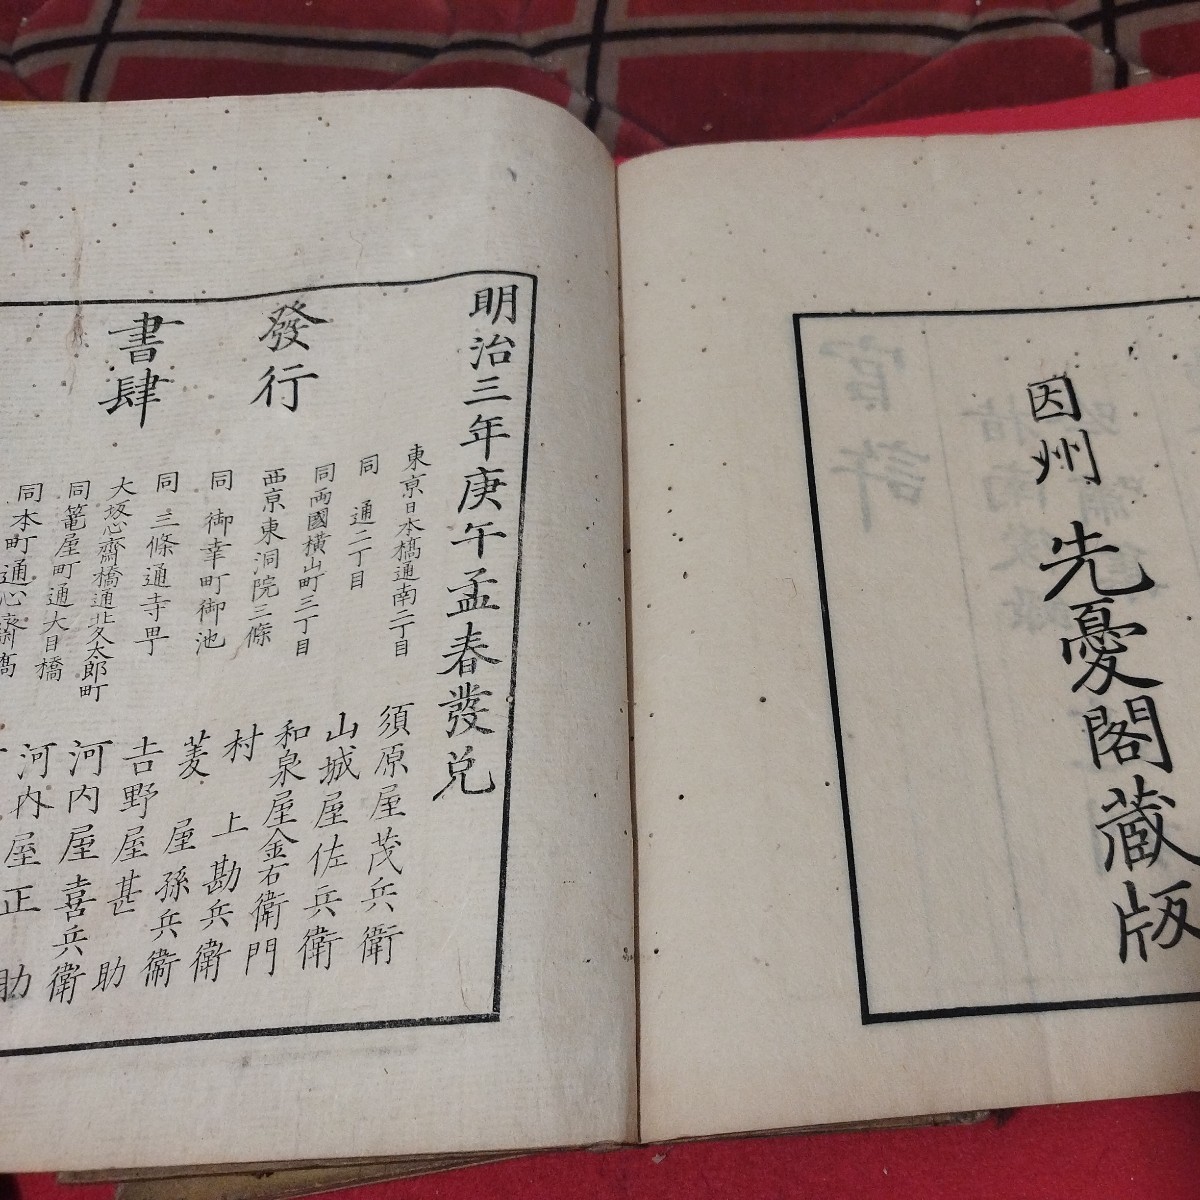 因州
先憂閣蔵版
官許
明治三年庚午孟春發兌
發行
書肆
東京日本橋通南二丁目 須原屋茂兵衛
同 通二丁目 山城屋佐兵衛
同両國横山町三丁目 和泉屋金右衛門
西京東洞院三條 村上勘兵衛
同 御幸町御池 菱屋孫兵衛
同 三條通寺町 吉野屋甚助
大坂心齋橋通北久太郎町 河内屋喜兵衛
同篭屋町通大目橋 河内屋正助
同本町通心齋橋